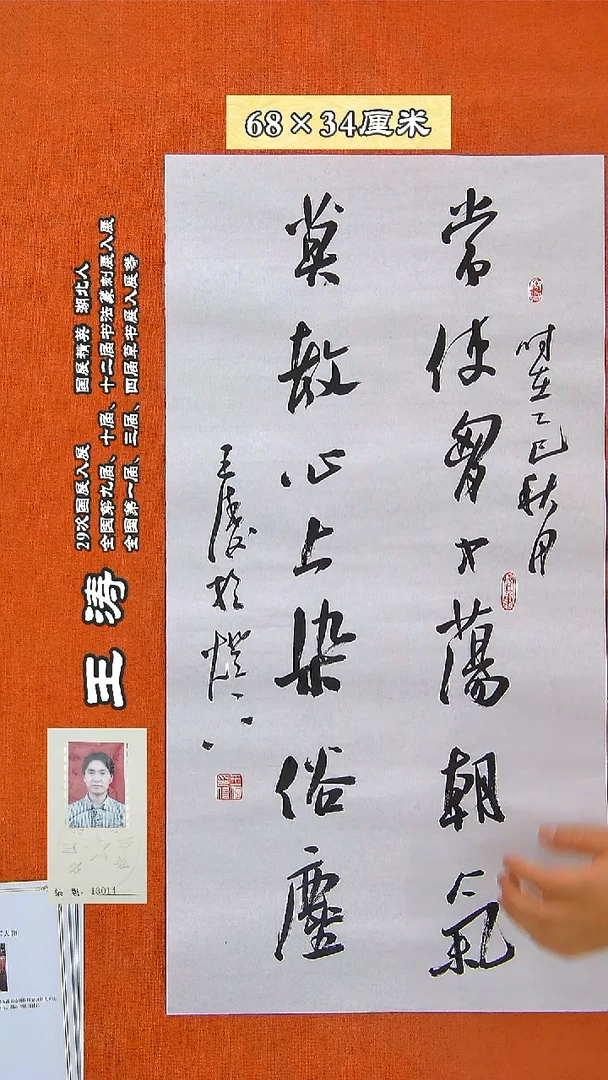 68×34厘米
常使胷中蕩朝氣
莫教心上染俗塵
时在乙巳秋月
王涛於燈下
王涛
29次国展入展 国展精英 湖北人
全国第九届、十届、十二届书法篆刻展入展
全国第一届、三届、四届草书展入展等